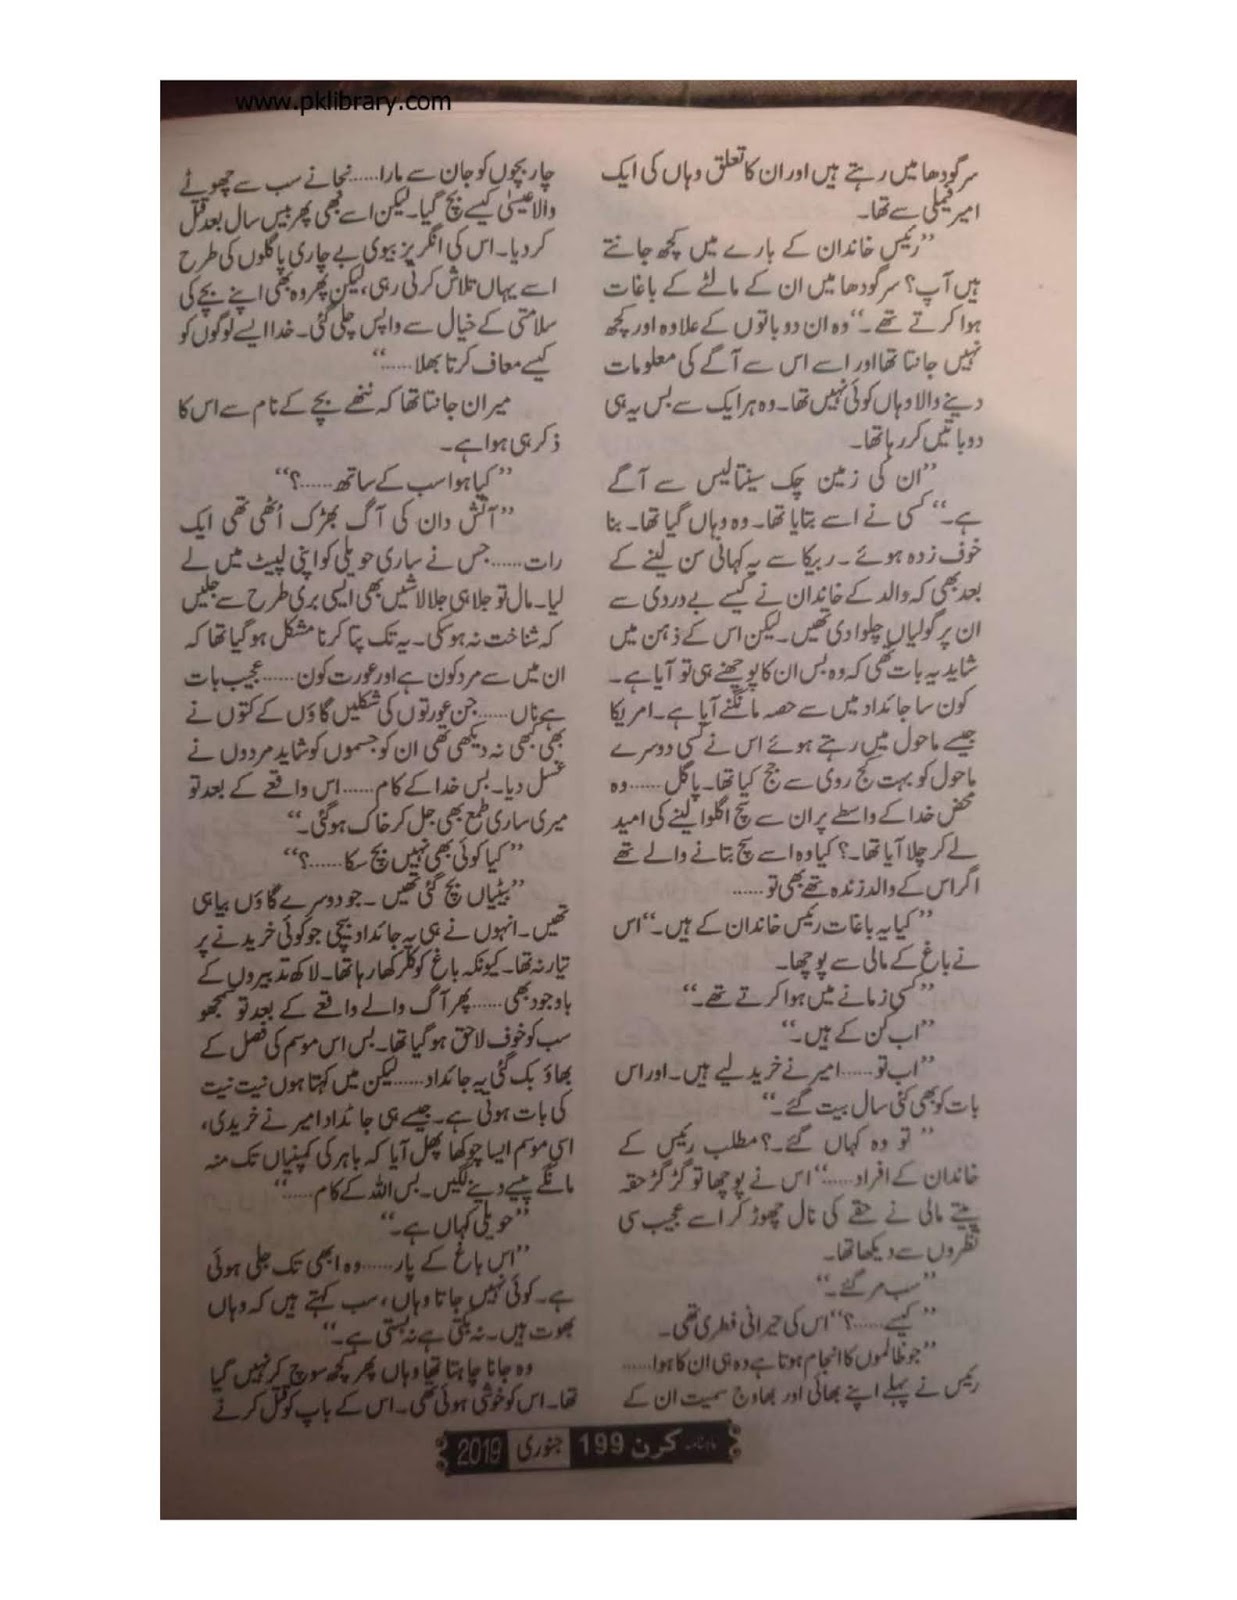 www.pklibrary.com
سرگودھا میں رہتے ہیں اور ان کا تعلق وہاں کی ایک
امیر فیملی سے تھا۔
”رئیس خاندان کے بارے میں کچھ جانتے
ہیں آپ؟ سرگودھا میں ان کے مالٹے کے باغات
ہوا کرتے تھے۔“ وہ ان دو باتوں کے علاوہ اور کچھ
نہیں جانتا تھا اور اسے اس سے آگے کی معلومات
دینے والا وہاں کوئی نہیں تھا۔ وہ ہر ایک سے بس یہ ہی
دو باتیں کر رہا تھا۔
”ان کی زمین چک سینتالیس سے آگے
ہے۔“ کسی نے اسے بتایا تھا۔ وہ وہاں گیا تھا۔ بنا
خوف زدہ ہوئے۔ ربیکا سے یہ کہانی سن لینے کے
بعد بھی کہ والد کے خاندان نے کیسے بے دردی سے
ان پر گولیاں چلوا دی تھیں۔ لیکن اس کے ذہن میں
شاید یہ بات تھی کہ وہ بس ان کا پوچھنے ہی تو آیا ہے۔
کون سا جائداد میں سے حصہ مانگنے آیا ہے۔ امریکا
جیسے ماحول میں رہتے ہوئے اس نے کسی دوسرے
ماحول کو بہت کج روی سے جج کیا تھا۔ پاگل...... وہ
محض خدا کے واسطے پر ان سے سچ اگلوا لینے کی امید
لے کر چلا آیا تھا۔؟ کیا وہ اسے سچ بتانے والے تھے
اگر اس کے والد زندہ تھے بھی تو......
”کیا یہ باغات رئیس خاندان کے ہیں۔“ اس
نے باغ کے مالی سے پوچھا۔
”کسی زمانے میں ہوا کرتے تھے۔“
”اب کن کے ہیں۔“
”اب تو...... امیر نے خرید لیے ہیں۔ اور اس
بات کو بھی کئی سال بیت گئے۔“
”تو وہ کہاں گئے۔؟ مطلب رئیس کے
خاندان کے افراد......“ اس نے پوچھا تو گڑ گڑ حقہ
پیتے مالی نے حقے کی نال چھوڑ کر اسے عجیب سی
نظروں سے دیکھا تھا۔
”سب مر گئے۔“
”کیسے......؟“ اس کی حیرانی فطری تھی۔
”جو ظالموں کا انجام ہوتا ہے وہ ہی ان کا ہوا......
رئیس نے پہلے اپنے بھائی اور بھاوج سمیت ان کے
چار بچوں کو جان سے مارا...... نجانے سب سے چھوٹے
والا عیسٰی کیسے بچ گیا۔ لیکن اسے بھی پھر بیس سال بعد قتل
کر دیا۔ اس کی انگریز بیوی بے چاری پاگلوں کی طرح
اسے یہاں تلاش کرتی رہی، لیکن پھر وہ بھی اپنے بچے کی
سلامتی کے خیال سے واپس چلی گئی۔ خدا ایسے لوگوں کو
کیسے معاف کرتا بھلا......“
میران جانتا تھا کہ ننھے بچے کے نام سے اس کا
ذکر ہی ہوا ہے۔
”کیا ہوا سب کے ساتھ......؟“
”آتش دان کی آگ بھڑک اُٹھی تھی ایک
رات...... جس نے ساری حویلی کو اپنی لپیٹ میں لے
لیا۔ مال تو جلا ہی جلا لاشیں بھی ایسی بری طرح سے جلیں
کہ شناخت نہ ہو سکی۔ یہ تک پتا کرنا مشکل ہو گیا تھا کہ
ان میں سے مرد کون ہے اور عورت کون...... عجیب بات
ہے ناں...... جن عورتوں کی شکلیں گاؤں کے کتوں نے
بھی کبھی نہ دیکھی تھی ان کو جسموں کو شاید مردوں نے
غسل دیا۔ بس خدا کے کام...... اس واقعے کے بعد تو
میری ساری طمع بھی جل کر خاک ہو گئی۔“
”کیا کوئی بھی نہیں بچ سکا......؟“
”بیٹیاں بچ گئی تھیں۔ جو دوسرے گاؤں بیاہی
تھیں۔ انہوں نے ہی یہ جائداد بیچی جو کوئی خریدنے پر
تیار نہ تھا۔ کیونکہ باغ کو کلر کھا رہا تھا۔ لاکھ تدبیروں کے
باوجود بھی...... پھر آگ والے واقعے کے بعد تو سمجھو
سب کو خوف لاحق ہو گیا تھا۔ بس اس موسم کی فصل کے
بھاؤ بک گئی یہ جائداد...... لیکن میں کہتا ہوں نیت نیت
کی بات ہوتی ہے۔ جیسے ہی جائداد امیر نے خریدی،
اسی موسم ایسا چوکھا پھل آیا کہ باہر کی کمپنیاں تک منہ
مانگے پیسے دینے لگیں۔ بس اللہ کے کام......“
”حویلی کہاں ہے۔“
”اس باغ کے پار...... وہ ابھی تک جلی ہوئی
ہے۔ کوئی نہیں جاتا وہاں، سب کہتے ہیں کہ وہاں
بھوت ہیں۔ نہ بکتی ہے نہ بستی ہے۔“
وہ جانا چاہتا تھا وہاں پھر کچھ سوچ کر نہیں گیا
تھا۔ اس کو خوشی ہوئی تھی۔ اس کے باپ کو قتل کرنے
ماہنامہ کرن 199 جنوری 2019